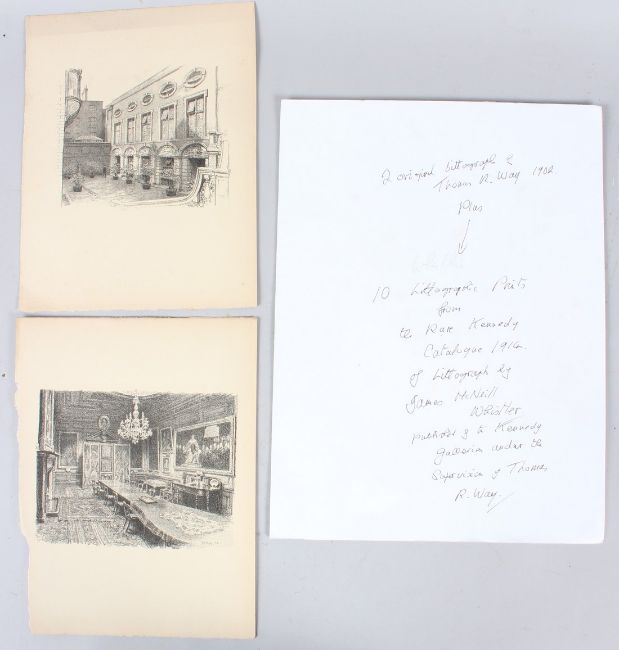 2 original lithograph by
Thomas R. Way 1902
Plus
10 Lithographic Prints
from
the Rare Kennedy
Catalogue 1914
of Lithograph by
James McNeill
Whistler
published by the Kennedy
Galleries under the
Supervision of Thomas
R. Way.